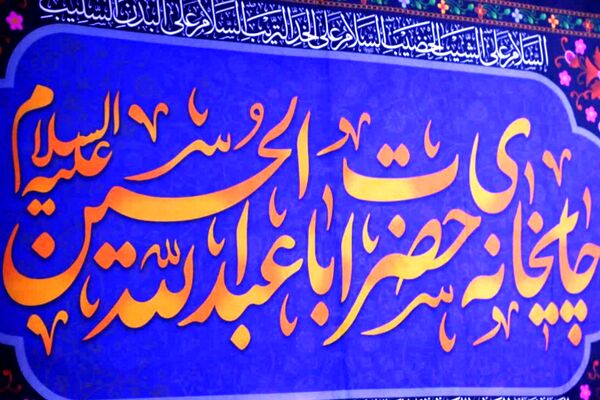 السلام علی الشیب الخضیب السلام علی الخد التریب السلام علی البدن السلیب
چایخانه ی حضرت اباعبدالله الحسین علیه السلام